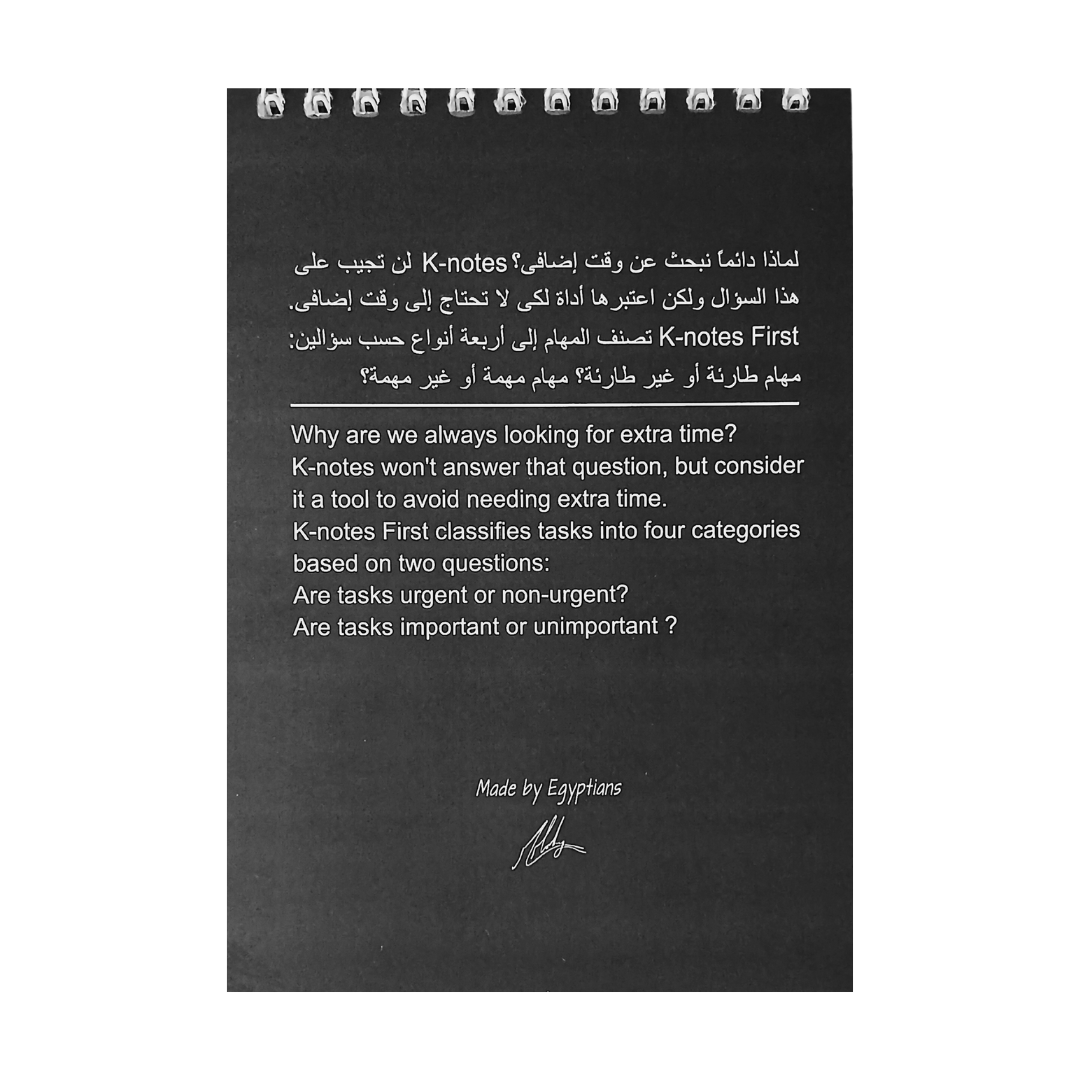 لماذا دائماً نبحث عن وقت إضافى؟ K-notes لن تجيب على
هذا السؤال ولكن اعتبرها أداة لكى لا تحتاج إلى وقت إضافى.
K-notes First تصنف المهام إلى أربعة أنواع حسب سؤالين:
مهام طارئة أو غير طارئة؟ مهام مهمة أو غير مهمة؟
Why are we always looking for extra time?
K-notes won't answer that question, but consider
it a tool to avoid needing extra time.
K-notes First classifies tasks into four categories
based on two questions:
Are tasks urgent or non-urgent?
Are tasks important or unimportant ?
Made by Egyptians